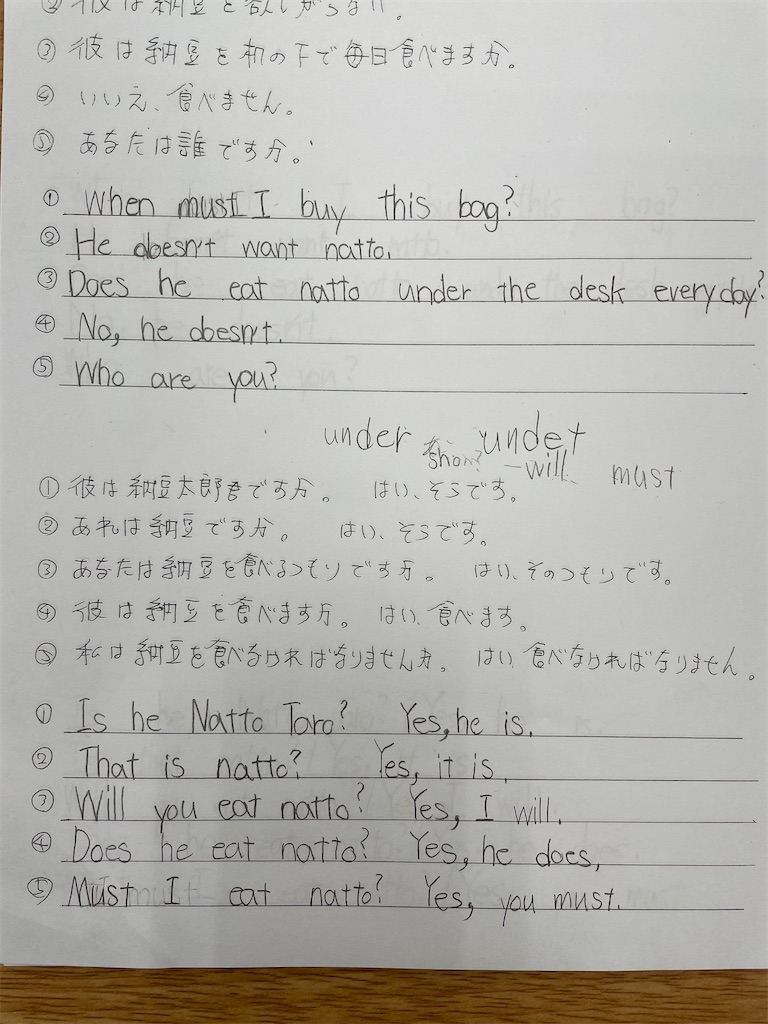 ② 彼は納豆を欲しがらない。
③ 彼は納豆を机の下で毎日食べますか。
④ いいえ、食べません。
⑤ あなたは誰ですか。
① When must I buy this bag?
② He doesn't want natto.
③ Does he eat natto under the desk everyday?
④ No, he doesn't.
⑤ Who are you?
under undet
will must
① 彼は納豆太郎君ですか。 はい、そうです。
② あれは納豆ですか。 はい、そうです。
③ あなたは納豆を食べるつもりですか。 はい、そのつもりです。
④ 彼は納豆を食べますか。 はい、食べます。
⑤ 私は納豆を食べなければなりませんか。 はい、食べなければなりません。
① Is he Natto Taro? Yes, he is.
② That is natto? Yes, it is.
③ Will you eat natto? Yes, I will.
④ Does he eat natto? Yes, he does.
⑤ Must I eat natto? Yes, you must.